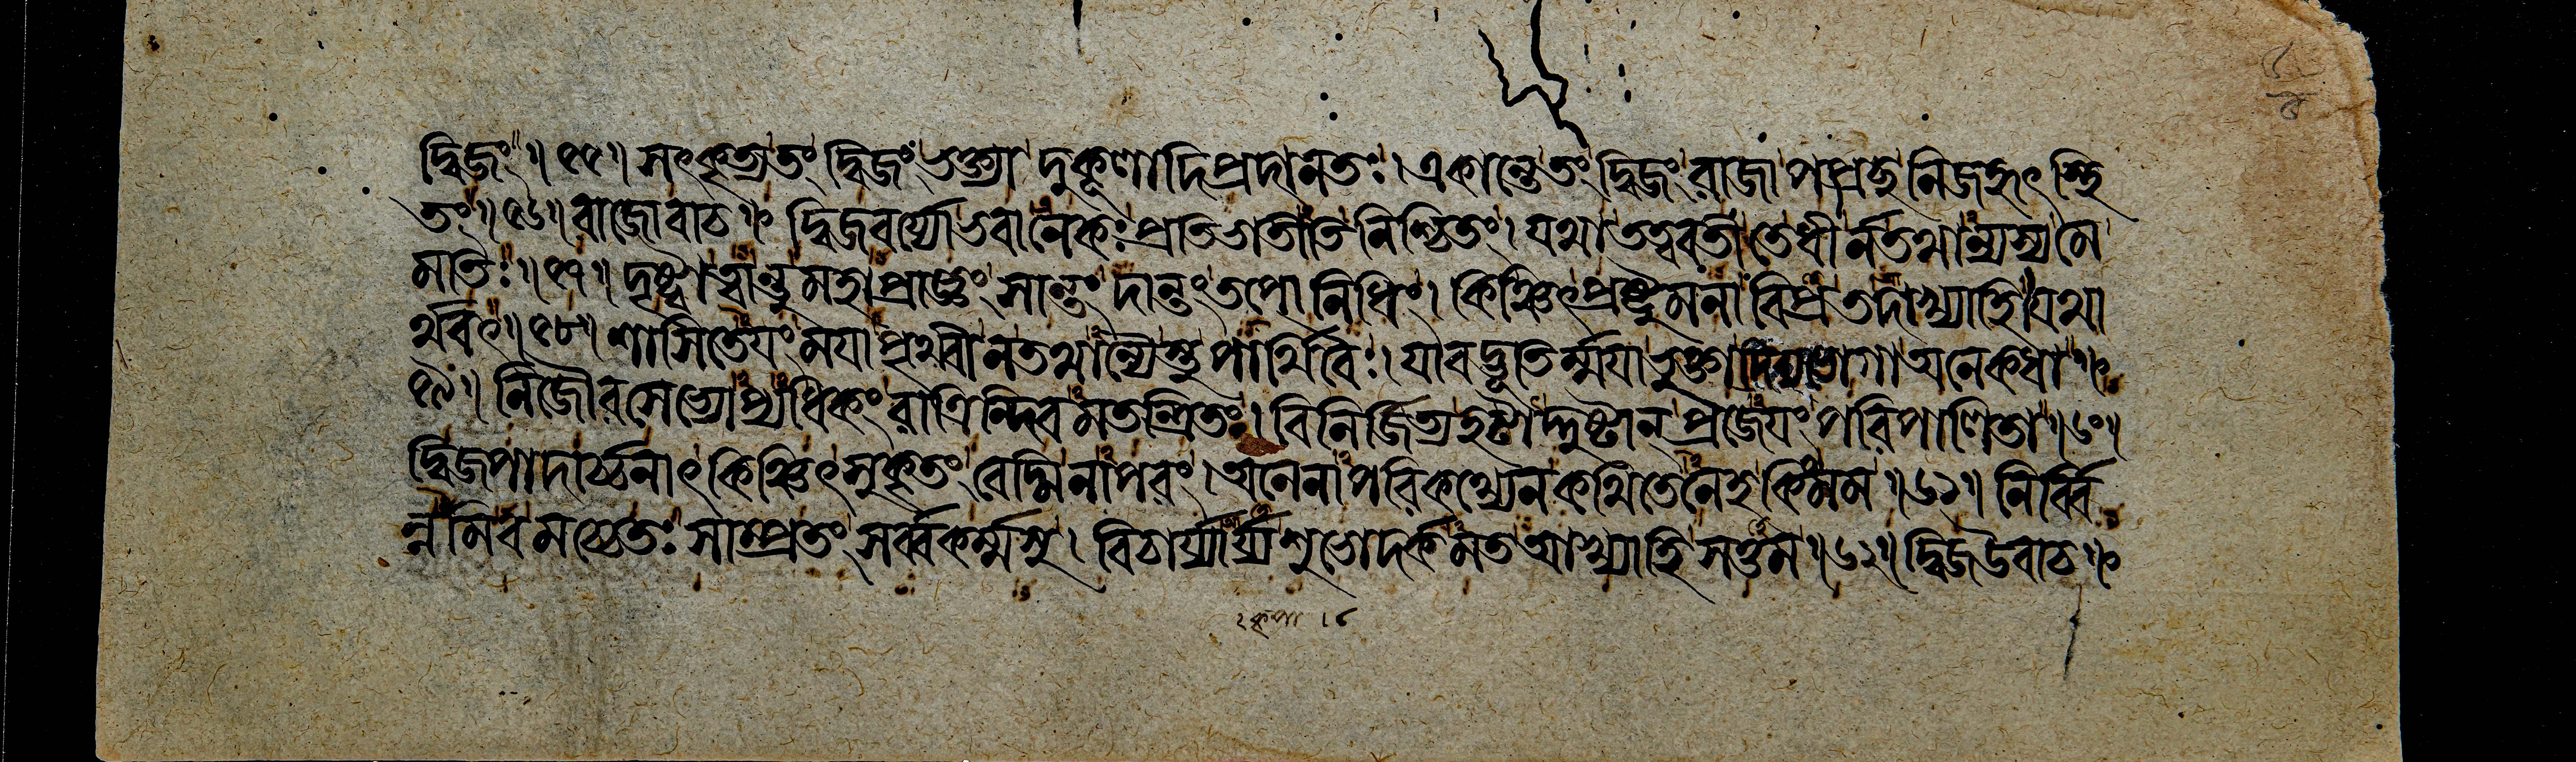 দ্বিজং ॥ ৫৫ ॥ সৎকৃত্যতং দ্বিজং ভক্ত্যা দুকূলাদিপ্রদানতঃ । একান্তেতং দ্বিজং রাজা পপ্রচ্ছ নিজহৃৎস্থি
তং ॥ ৫৬ ॥ রাজোবাচ ॥ দ্বিজবর্য্যো ভবানেকঃ প্রতিভাতীতি নিশ্চিতং । যথা তত্ববতী তে ধীর্নতথান্যস্য মে
মতিঃ ॥ ৫৭ ॥ দৃষ্ট্বা ত্বান্তু মহাপ্রাজ্ঞং সান্তং দান্তং তপোনিধিং । কিঞ্চিৎ প্রষ্টুমনা বিপ্র তদাখ্যাহি যথা
র্থবৎ ॥ ৫৮ ॥ শাসিতেয়ং ময়া পৃথ্বী ন তথান্যৈস্তু পার্থিবৈঃ । যাবদ্ভূতির্ম্ময়া ভুক্তা দিব্যভোগা অনেকধা ॥
৫৯ ॥ নিজৌরসেভ্যোপ্যধিকং রাত্রিন্দিবমতন্দ্রিতং । বিনির্জিত্য হঠাদ্দুষ্টান্ প্রজেয়ং পরিপালিতা ॥ ৬০ ॥
দ্বিজপাদার্চ্চনাৎ কিঞ্চিৎ সুকৃতং বেদ্মি নাপরং । অনেনাপরিকথ্যেন কথিতেনেহ কিম্মম ॥ ৬১ ॥ নির্ব্বি
ন্নমিব মচ্চেতঃ সাম্প্রতং সর্ব্বকর্ম্মসু । বিচার্য্যার্য্য শুভোদর্কমত আখ্যাহি সত্তম ॥ ৬২ ॥ দ্বিজউবাচ ॥